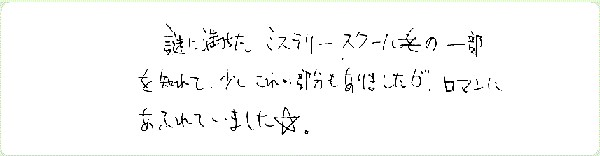 謎に満ちた ミステリースクール☆の一部
を知れて、少しこわい部分もありましたが、ロマンに
あふれていました☆。